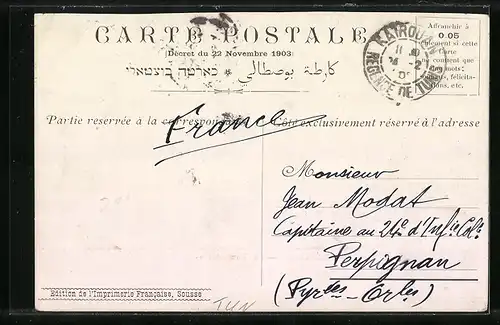 CARTE POSTALE
(Décret du 22 Novembre 1903)
كارطة بوصطالي * כארטה בוצטאלי
Affranchir à
0.05
seulement si cette
Carte
ne contient que
mots:
félicita-
tions, etc.
KAIROUAN
RÉGENCE DE TUNIS
Partie réservée à la correspondance
Côté exclusivement réservé à l'adresse
France
Monsieur
Jean Modat
Capitaine au 24e d'Infie Colle
Perpignan
(Pyrées-Orles)
Edition de l'Imprimerie Française, Sousse
TUN